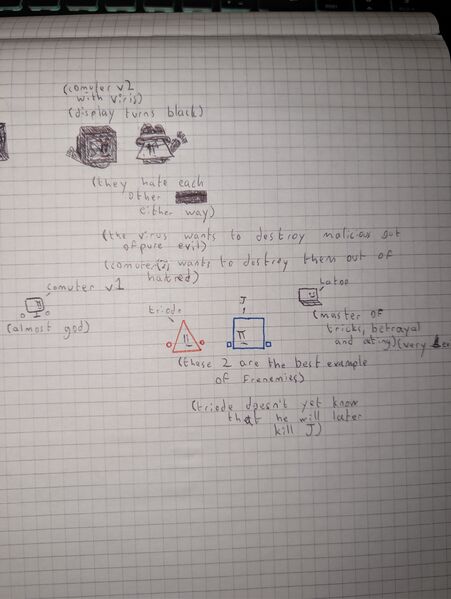 (comuter v2
with viris)
(display turns black)
(they hate each
other
either way)
(the virus wants to destroy malicious out
of pure evil)
(comuter v2 wants to destroy them out of
hatred)
comuter v1
(almost god)
triode
J
Latop
(master of
tricks, betrayal
and acting) (very
(these 2 are the best example
of Frenemies)
(triode doesn't yet know
that he will later
kill J)